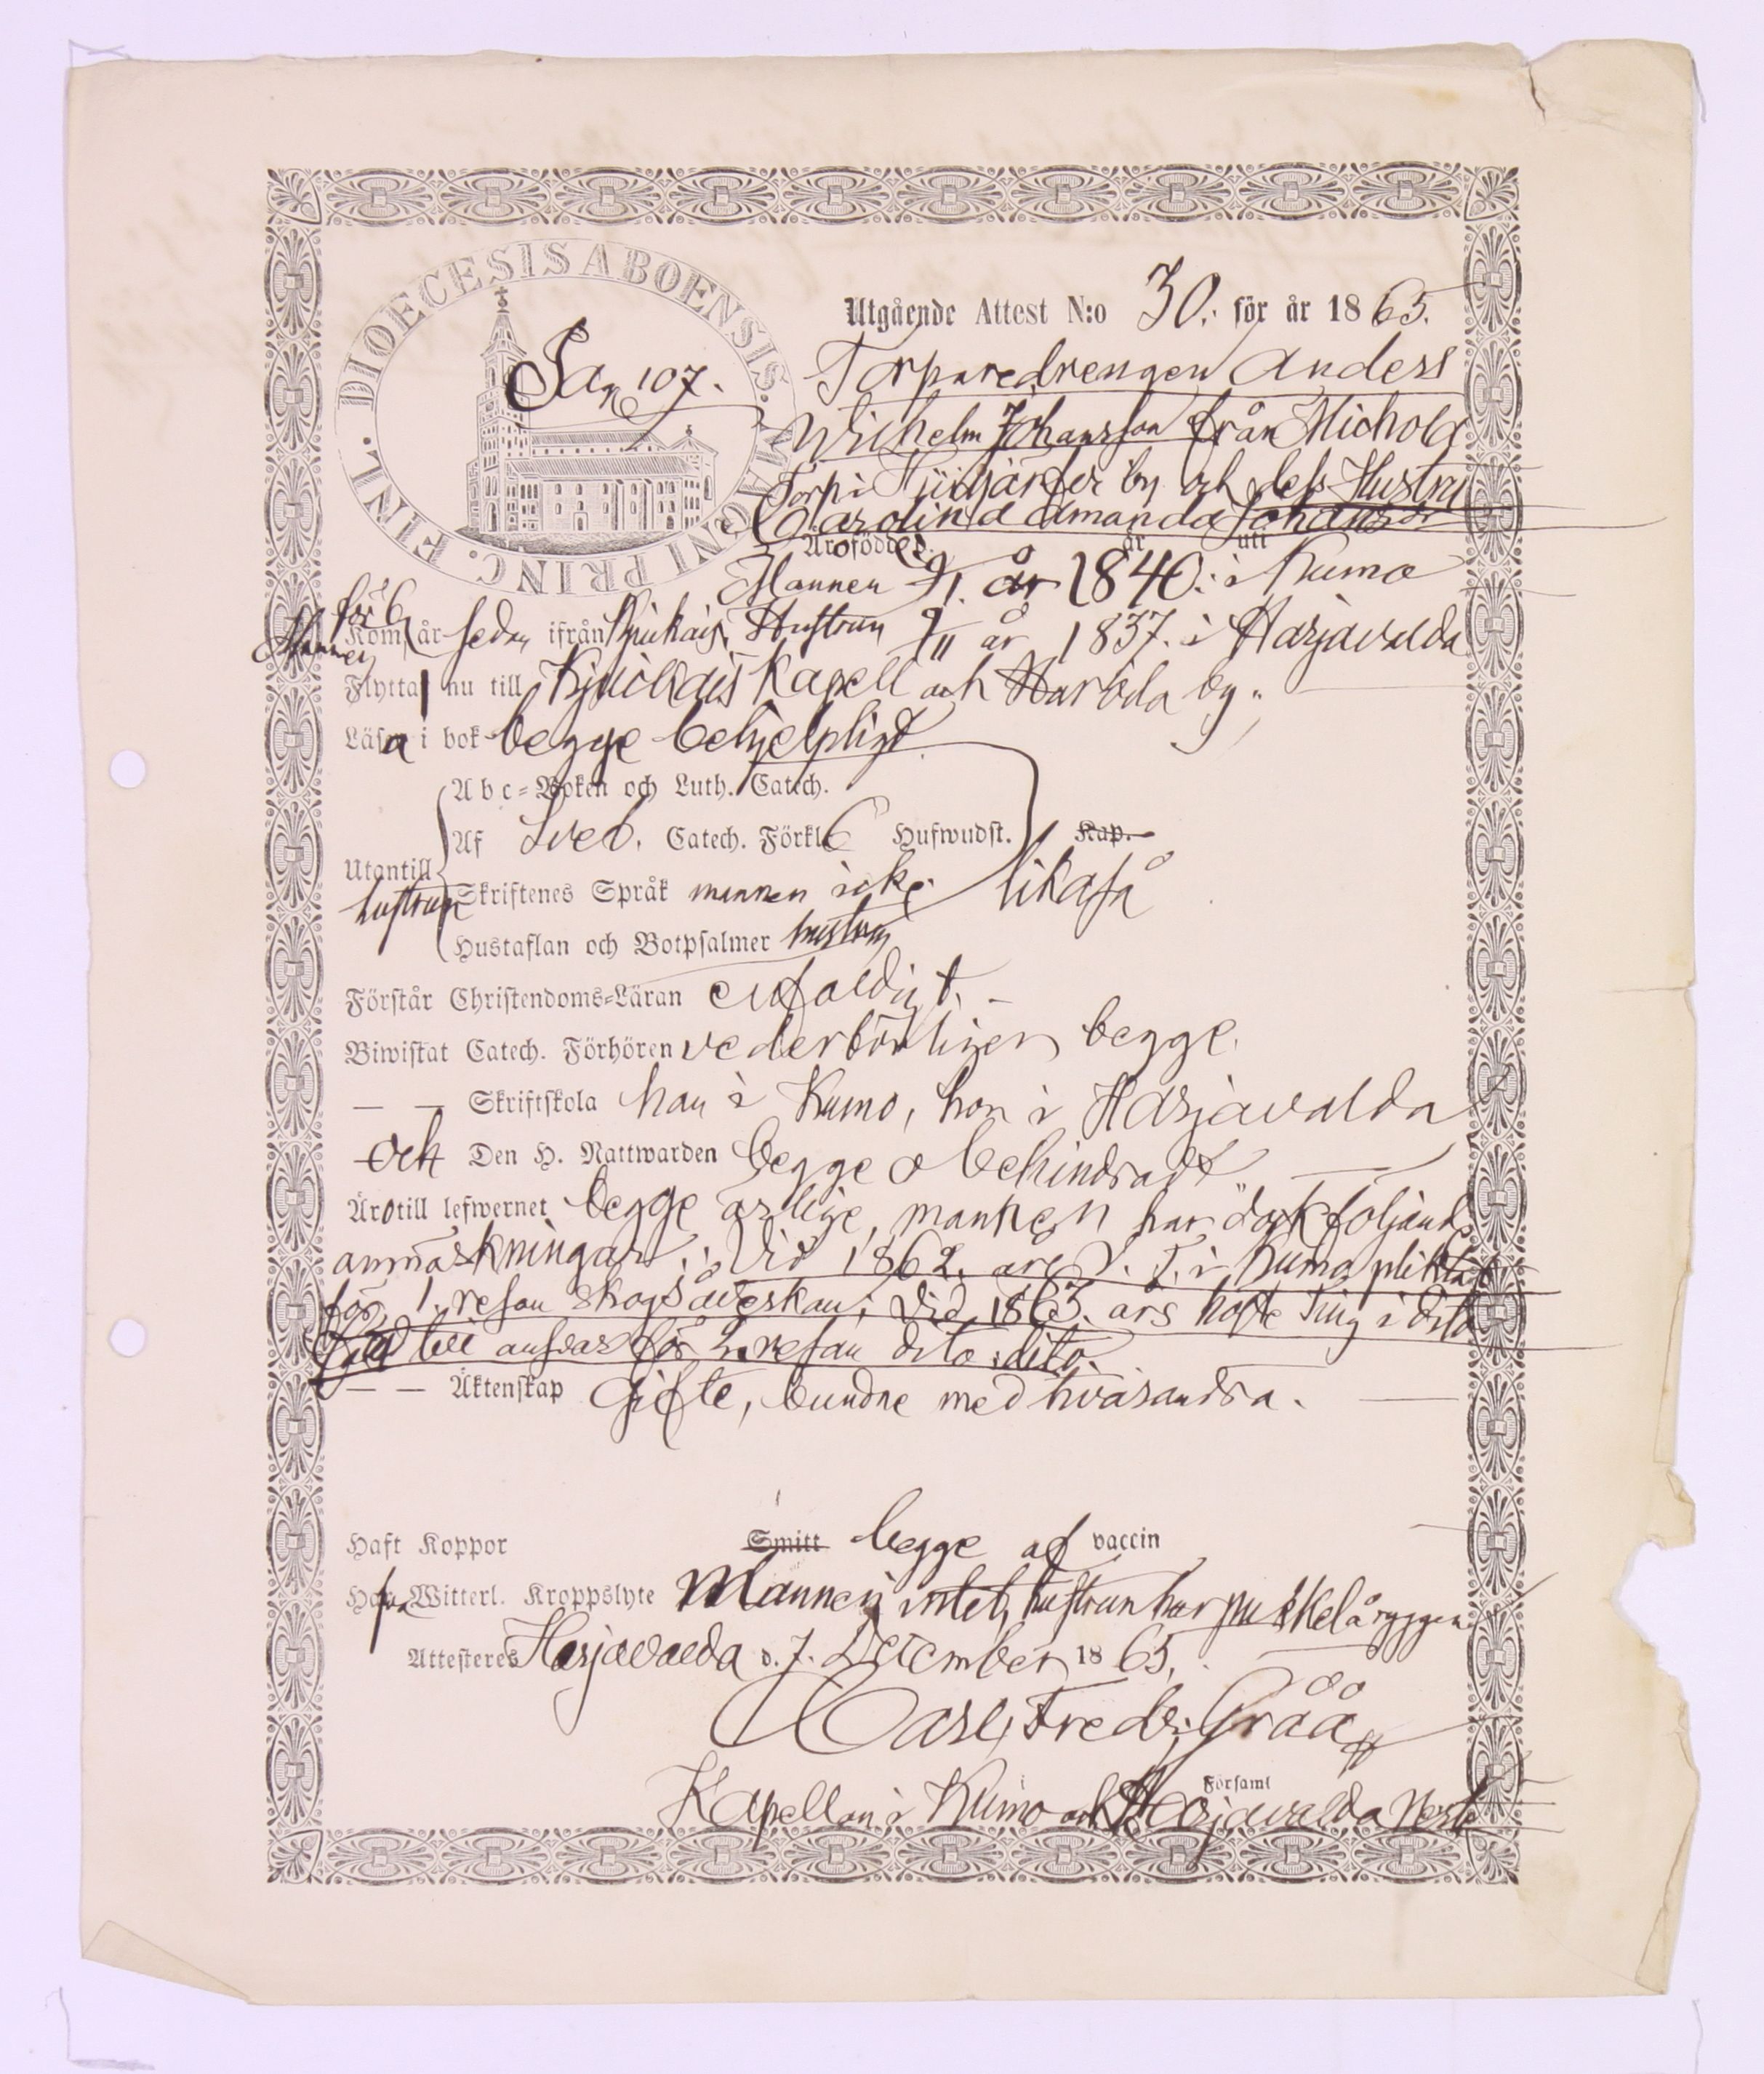 DIOECESIS ABOENSIS. MAGNI PRINC. FINL.
Utgående Attest N:o 30. för år 1865.
Pag 107.
Torparedrengen Anders
Wilhelm Johansson från Nichola
Torp i by och dess Hustru
Carolina Amanda Johansdr
Äro födde. år uti
Mannen 9/1. år 1840. i Kumo
för 6
Mannen Kom år sedan ifrån Kjukais, Hustrun 9/11 år 1837. i Harjavalda
Flytta nu till Kjulais Kapell och Harola by.
Läsa i bok begge behjelpligt
Abc-Boken och Luth. Catech.
Af Sveb. Catech. Förkl. 6 Hufwudst. Kap.
Utantill
hustrun
Skriftenes Språk mannen icke. likaså
Hustaflan och Botpsalmer hustrun
Förstår Christendoms-Läran enfaldigt.
Biwistat Catech. Förhören vederbörligen begge.
— — Skriftskola han i Kumo, hon i Harjavalda
och Den H. Nattwarden begge obehindradt
Äro till lefwernet begge ärlige, mannen har dock följande
anmärkningar: Vid 1862. are V. T. i Kumo pliktat
för 1. resan skogsåverkan; Vid 1863. års höste Ting i dito
till ansvar för 2. resan dito dito.
— — Äktenskap Gifte, bundne med hvarandra.
Haft Koppor Smitt begge af vaccin
Hafwa Witterl. Kroppslyte Mannen intet, hustrun har puckel å ryggen
Attesteres Harjavalda d. 7. December 1865.
Carl Fredr. Gråå
Kapellan i Kumo och Harjavalda
i Församl